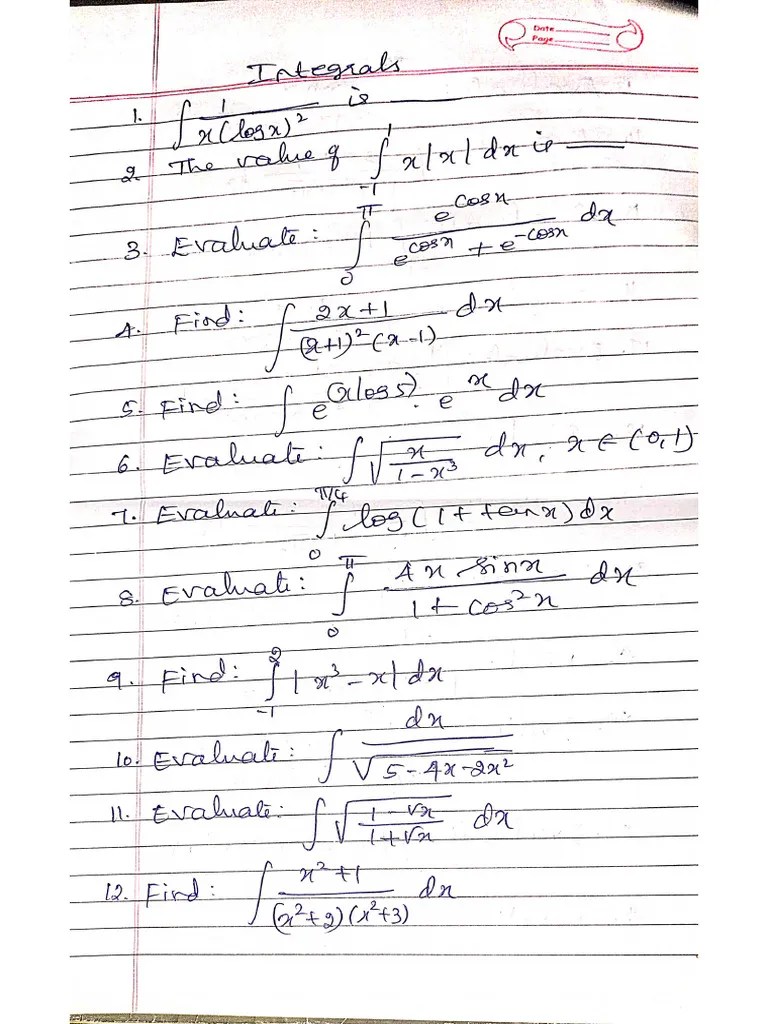 Date
Page
Integrals
1. ∫ 1/(x(log x)²) is ______
2. The value of ∫₋₁¹ x|x| dx is ______
3. Evaluate: ∫₀^π e^(cos x)/(e^(cos x) + e^(-cos x)) dx
4. Find: ∫ (2x+1)/((x+1)²(x-1)) dx
5. Find: ∫ e^(x log 5) . e^x dx
6. Evaluate: ∫ √(x/(1-x³)) dx, x ∈ (0,1)
7. Evaluate: ∫₀^(π/4) log(1+tan x) dx
8. Evaluate: ∫₀^π (4x sin x)/(1+cos²x) dx
9. Find: ∫₋₁² |x³-x| dx
10. Evaluate: ∫ dx/√(5-4x-2x²)
11. Evaluate: ∫ √((1-√x)/(1+√x)) dx
12. Find: ∫ (x²+1)/((x²+2)(x²+3)) dx